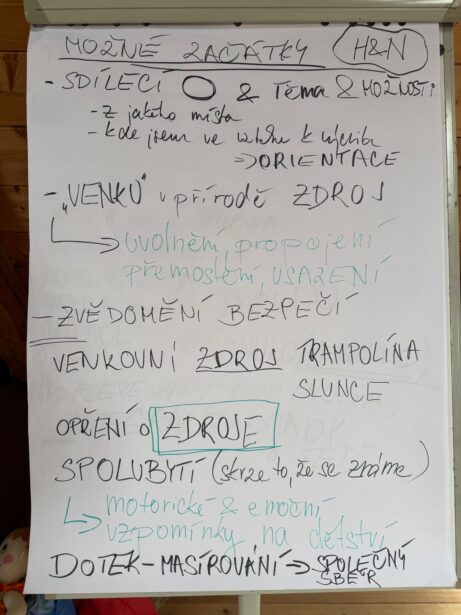 MOŽNÉ ZAČÁTKY H&N
- SDÍLECÍ O & Téma & MOŽNOSTI
- z jakého místa
- kde jsem ve vztahu k
⇒ ORIENTACE
- „VENKU" v přírodě ZDROJ
↳ uvolnění, propojení
přemostění, USAZENÍ
- ZVĚDOMĚNÍ BEZPEČÍ
VENKOVNÍ ZDROJ TRAMPOLÍNA
SLUNCE
OPŘENÍ O ZDROJE
SPOLUBYTÍ (skrze to, že se známe)
↳ motorické & emoční
vzpomínky na dětství
DOTEK - MASÍROVÁNÍ → SPOLEČNÝ
SBĚR